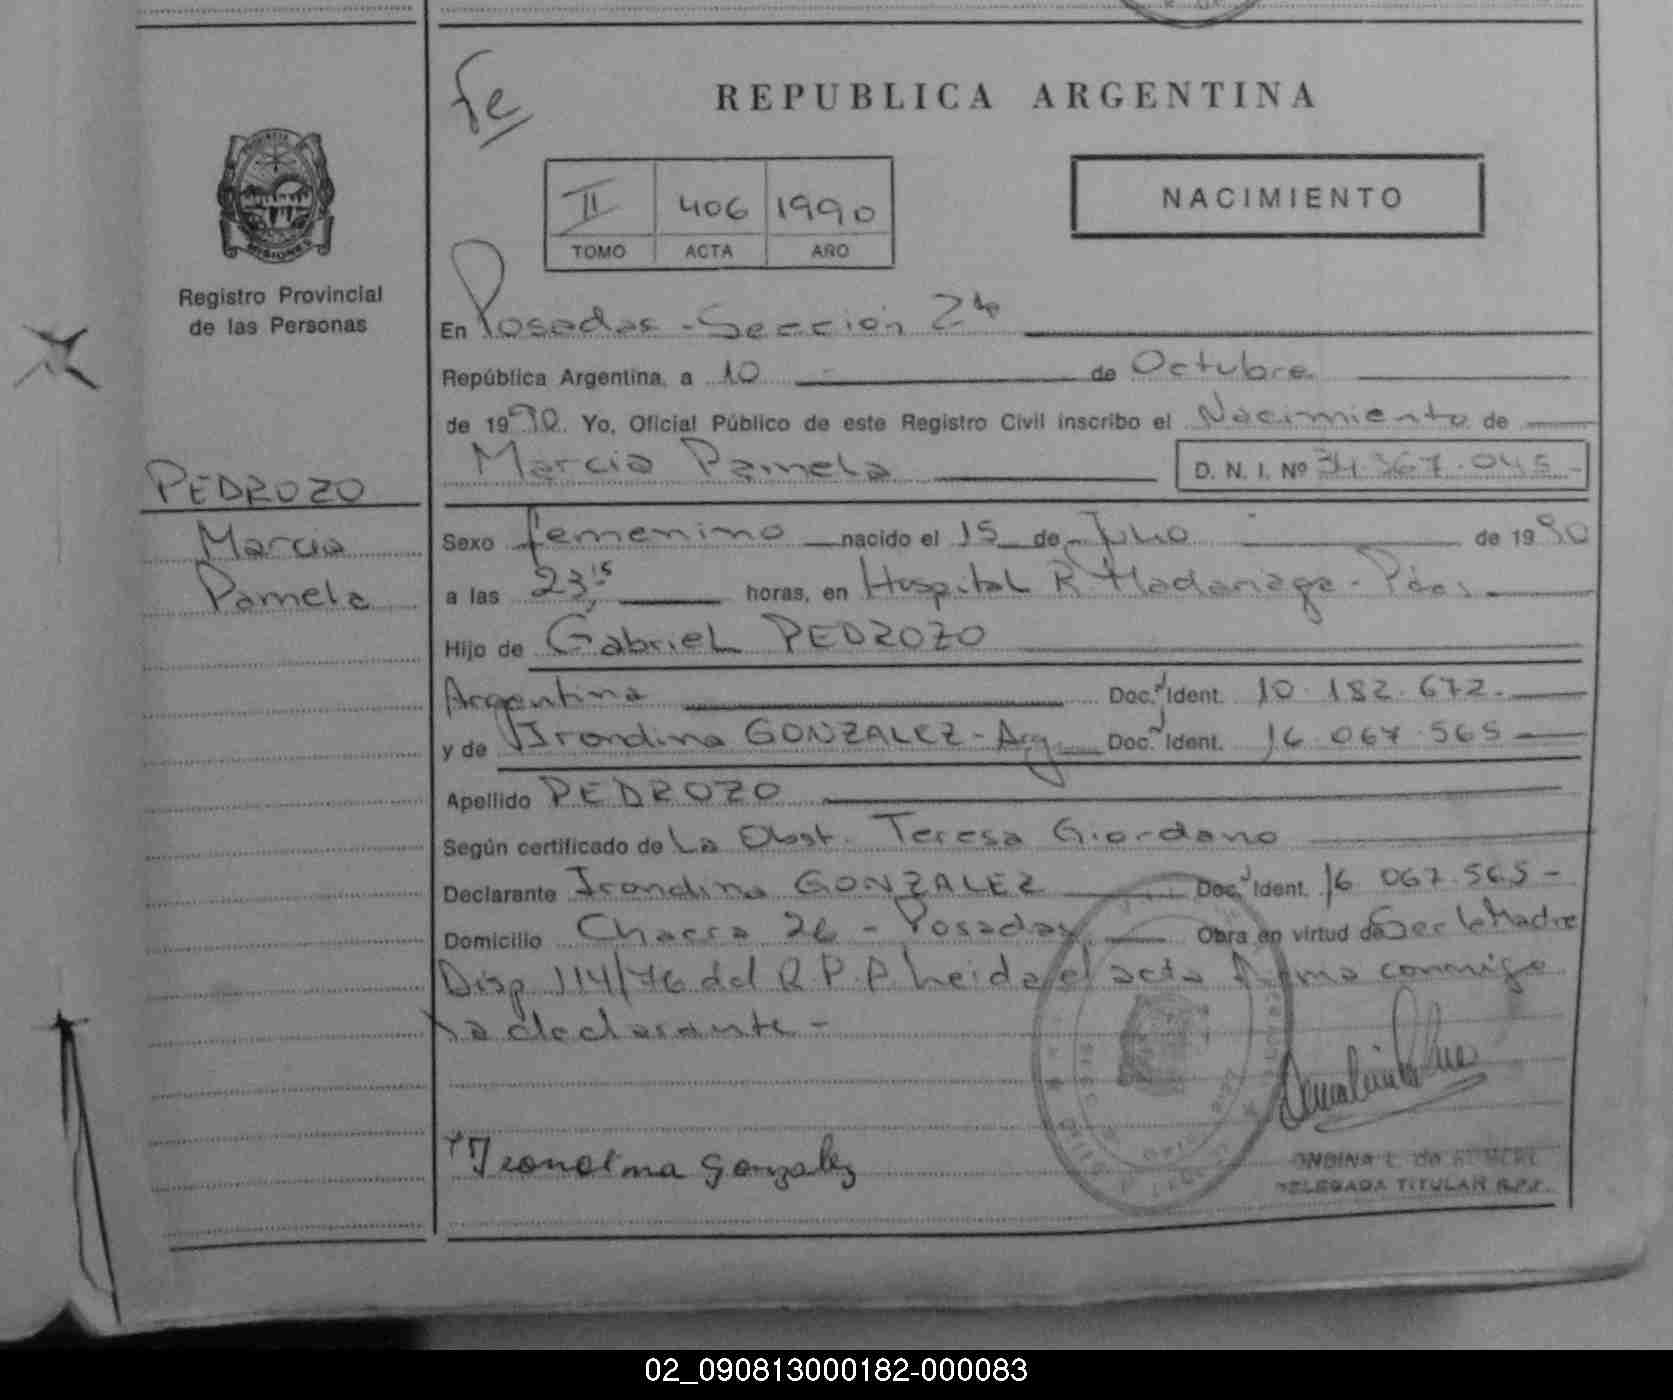 REPUBLICA ARGENTINA
II 406 1990
TOMO ACTA AÑO
NACIMIENTO
MISIONES
Registro Provincial
de las Personas
PEDROZO
Marcia
Pamela
En Posadas - Sección 2da
República Argentina, a 10 de Octubre
de 1990. Yo, Oficial Público de este Registro Civil inscribo el Nacimiento de
Marcia Pamela D. N. I. Nº 34.367.045-
Sexo femenino nacido el 15 de Julio de 1990
a las 23,15 horas, en Hospital R Madariaga - Pdas.
Hijo de Gabriel PEDROZO
Argentina Doc. Ident. 10.182.672.
y de Irondina GONZALEZ - Arg. Doc. Ident. 16.067.565
Apellido PEDROZO
Según certificado de La Obst. Teresa Giordano
Declarante Irondina GONZALEZ Doc. Ident. 16 067.565-
Domicilio Chacra 26 - Posadas. Obra en virtud de Ser la Madre
Disp 114/76 del R.P.P. Leida el acta firma conmigo
la declarante -
Gonzalez
DELEGADA TITULAR R.P.P.
02_090813000182-000083